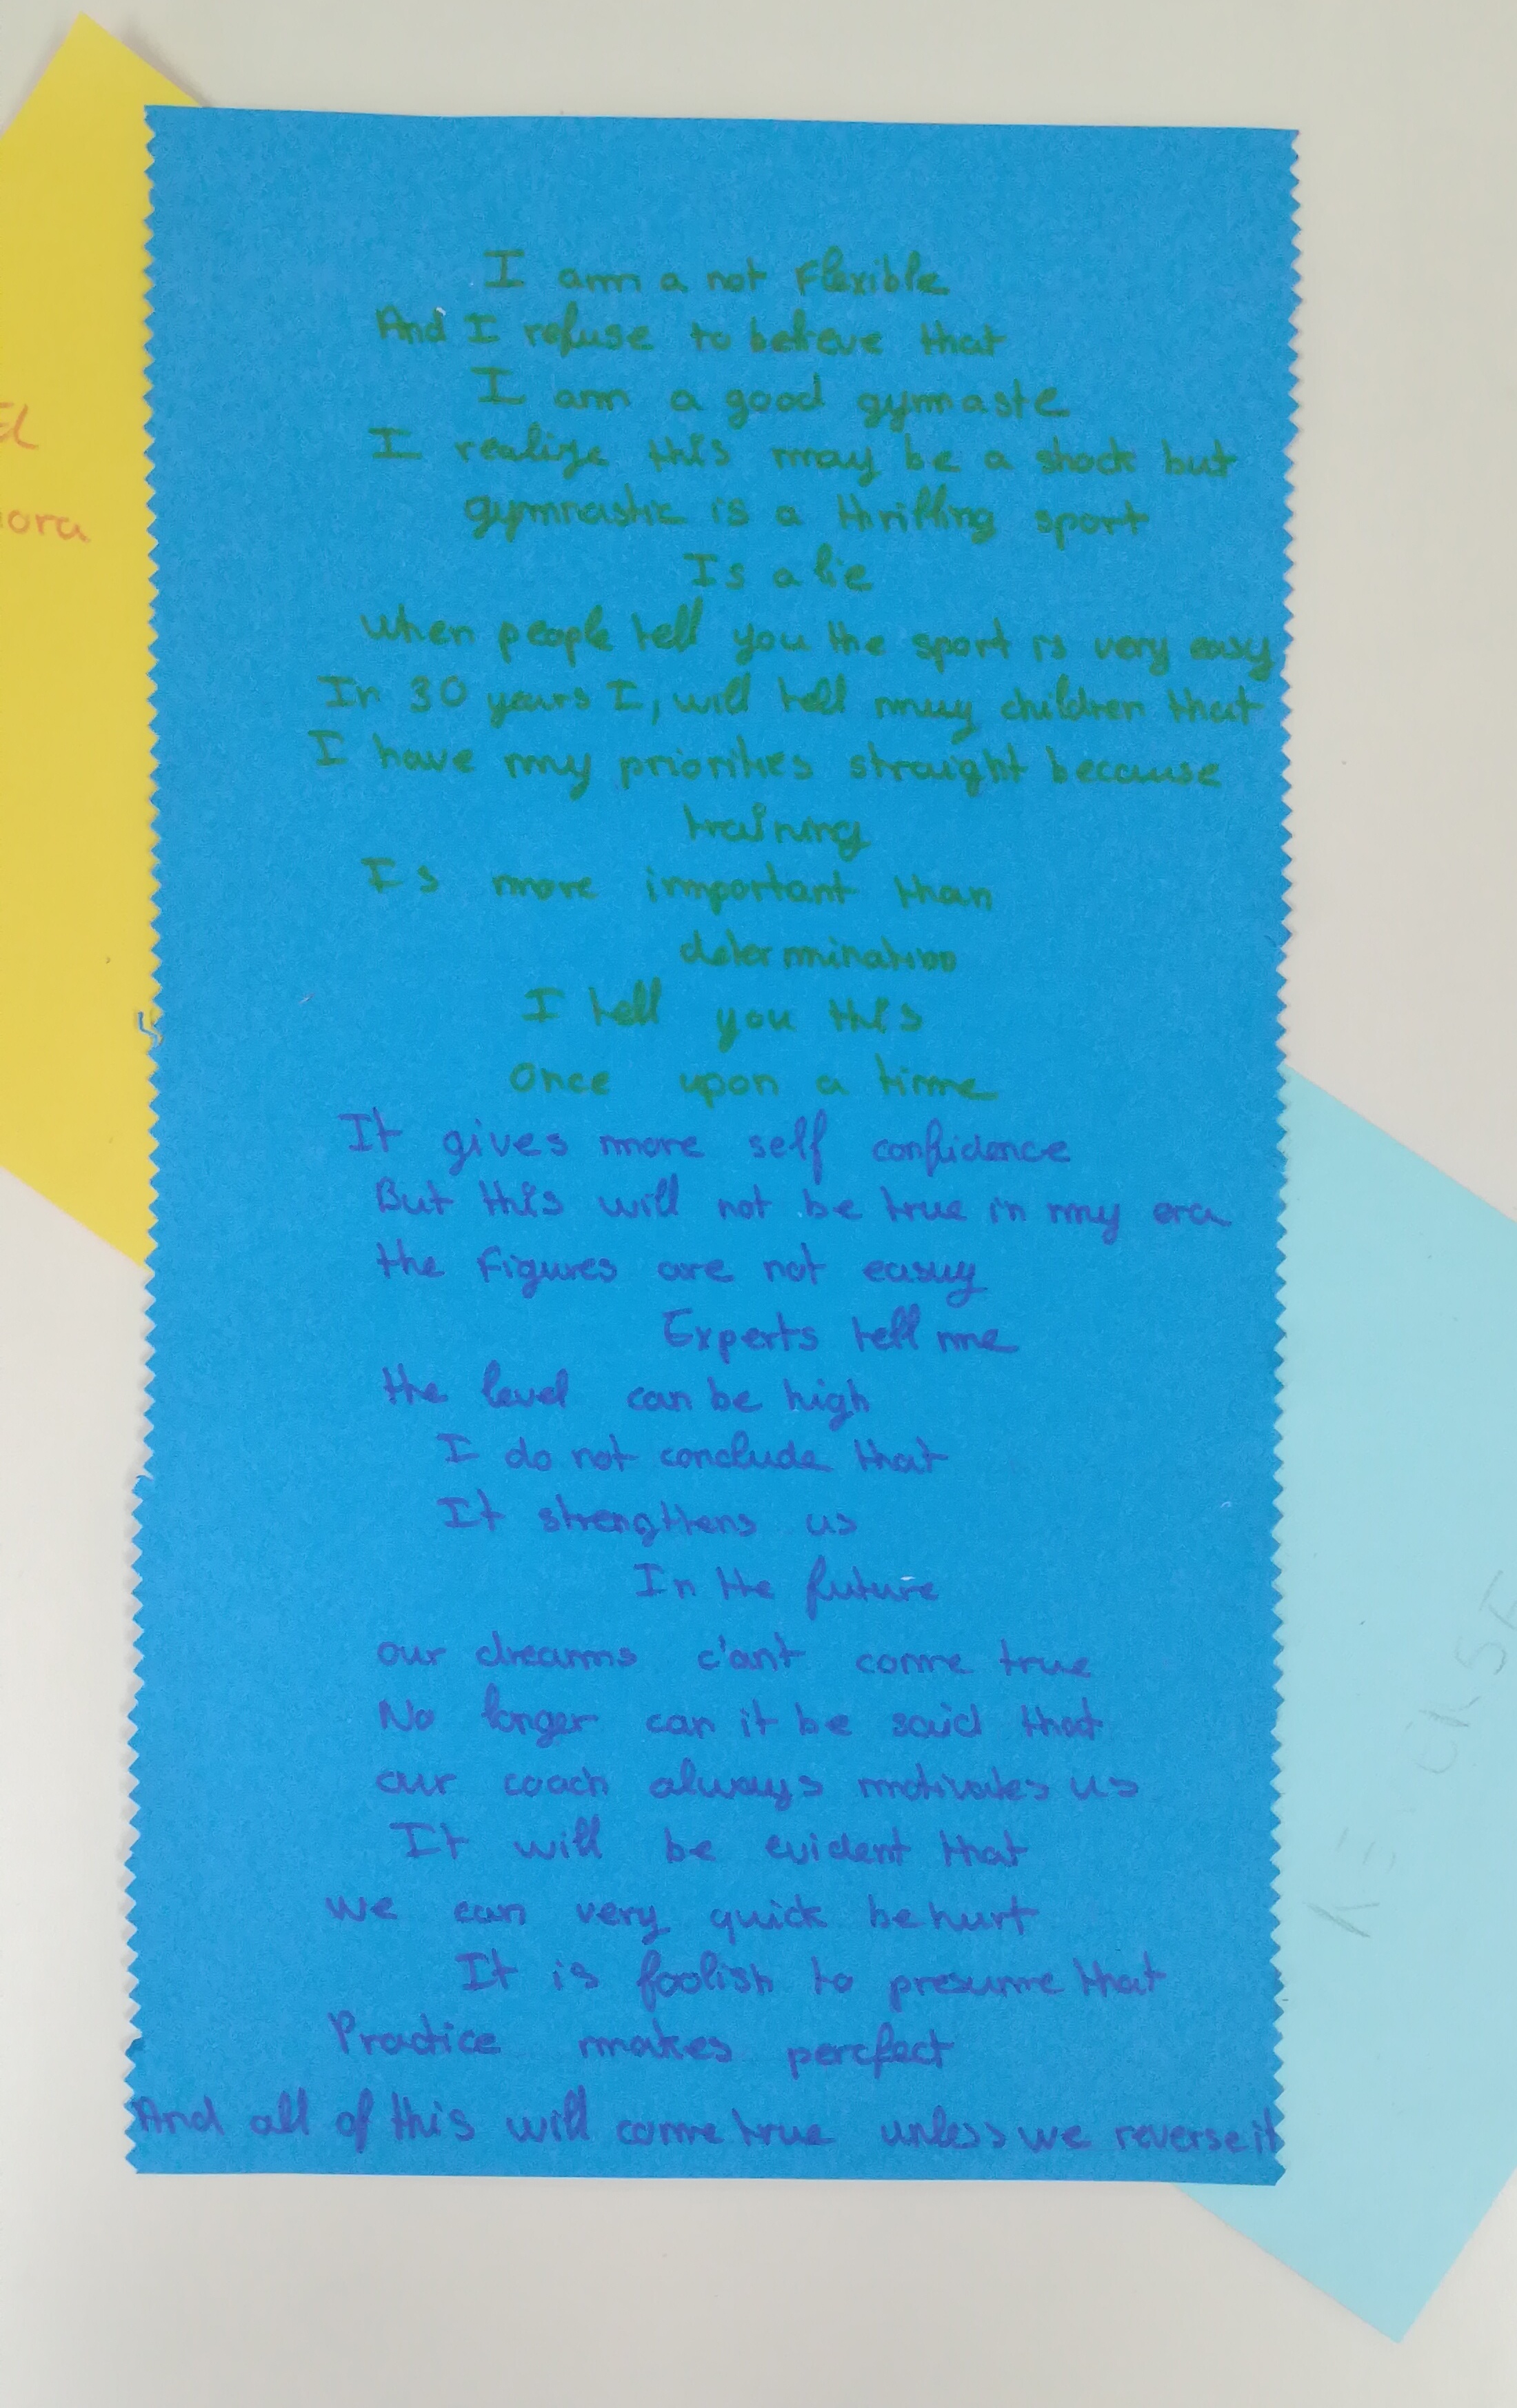 I am a not Flexible
And I refuse to believe that
I am a good gymnaste
I realize this may be a shock but
gymnastic is a thrilling sport
Is a lie
when people tell you the sport is very easy
In 30 years I, will tell muy children that
I have my priorities straight because
training
Is more important than
determination
I tell you this
Once upon a time
It gives more self confidence
But this will not be true in my era
the Figures are not easuy
Experts tell me
the level can be high
I do not conclude that
It strengthens us
In the future
our dreams c'ant come true
No longer can it be said that
our coach always motivates us
It will be evident that
we can very quick be hurt
It is foolish to presume that
Practice makes percfect
And all of this will come true unless we reverse it
ora